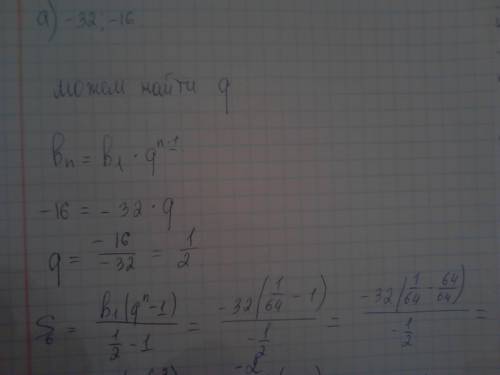 а) -32; -16
можем найти q
bn = b1 · q^(n-1)
-16 = -32 · q
q = -16/-32 = 1/2
S6 = b1(q^n - 1)/(1/2 - 1) = -32(1/64 - 1)/(-1/2) = -32(1/64 - 64/64)/(-1/2) =